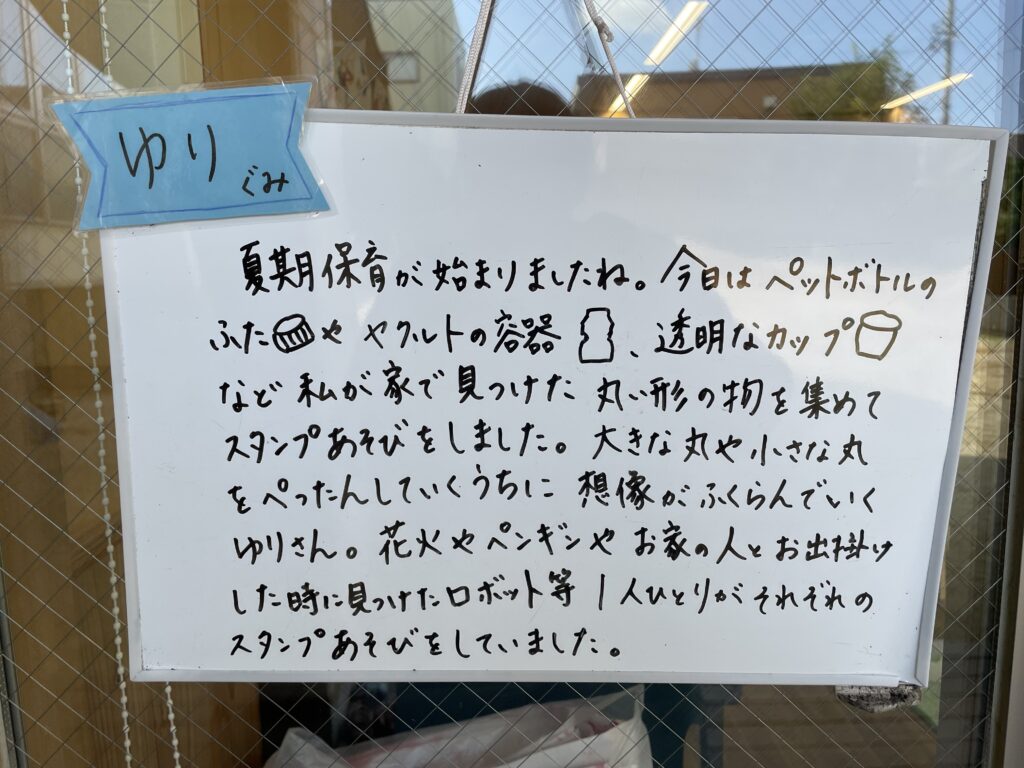 ゆり ぐみ
夏期保育が始まりましたね。今日はペットボトルの
ふたや ヤクルトの容器、透明なカップ
など 私が家で見つけた 丸い形の物を集めて
スタンプあそびをしました。大きな丸や小さな丸
をぺったんしていくうちに 想像がふくらんでいく
ゆりさん。花火やペンギンやお家の人とお出掛け
した時に見つけたロボット等 1人ひとりがそれぞれの
スタンプあそびをしていました。